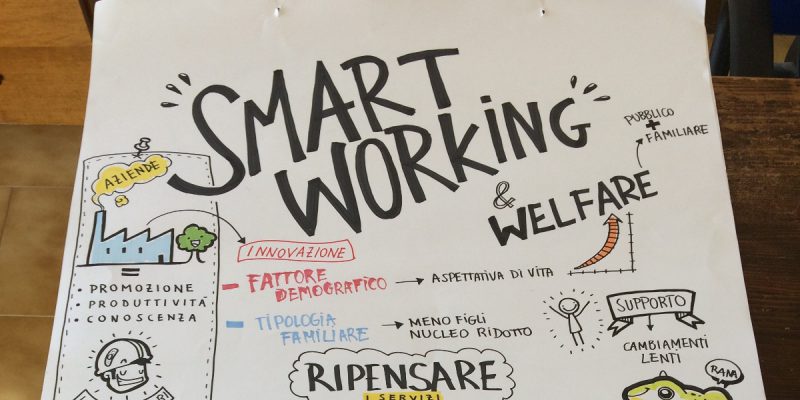 SMART
WORKING
& WELFARE
PUBBLICO
+
FAMILIARE
AZIENDE
=
• PROMOZIONE
• PRODUTTIVITÁ
• CONOSCENZA
INNOVAZIONE
- FATTORE
DEMOGRAFICO → ASPETTATIVA DI VITA
- TIPOLOGIA
FAMILIARE → MENO FIGLI
NUCLEO RIDOTTO
SUPPORTO
CAMBIAMENTI
LENTI
RIPENSARE
I SERVIZI
RANA